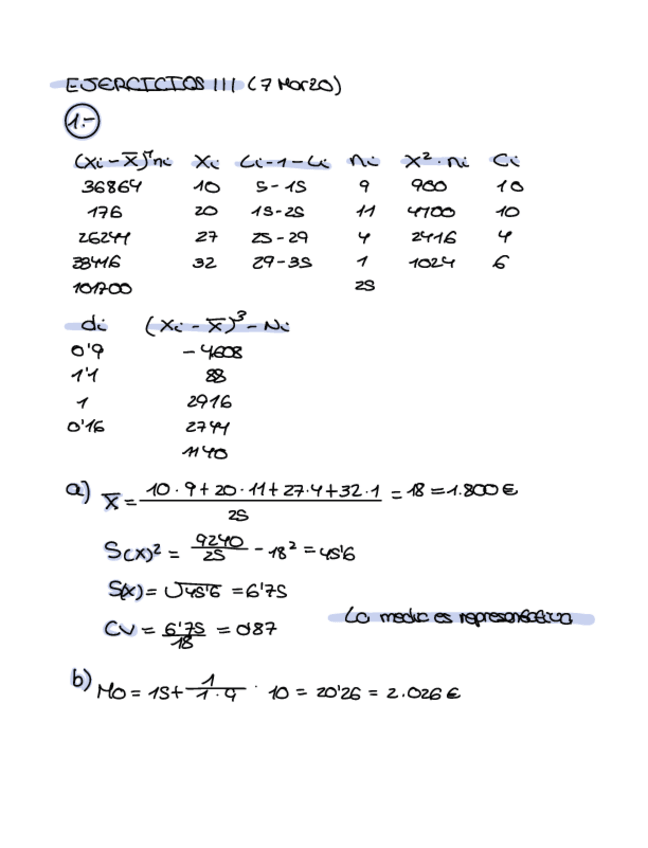 EJERCICIOS III (7 Marzo)
1.-
(Xi - X̄)⁴ni Xi Li-1-Li Ni X²·Ni Ci
36864 10 5-15 9 900 10
176 20 15-25 11 4400 10
26244 27 25-29 4 2916 4
38416 32 29-35 1 1024 6
101700 25
di (Xi - X̄)³ - Ni
0'9 -4608
1'1 88
1 2916
0'16 2744
1140
a) X̄ = 10·9+20·11+27·4+32·1 / 25 = 18 = 1.800 €
S(x)² = 9240/25 - 18² = 45'6
S(x) = √45'6 = 6'75
CV = 6'75/18 = 0'87
La media es representativa
b) Mo = 15+ 1/1·9 · 10 = 20'26 = 2.026 €